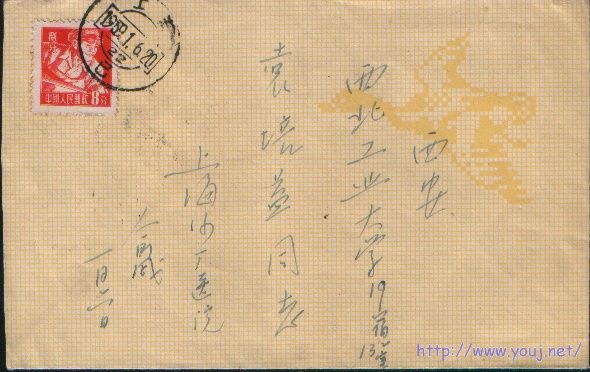 西安
西北工业大学19宿
13室
袁培益同志
上海沙厂医院
一月六日
上
1.6.20
22
中国人民邮政 8分
http://www.youj.net/